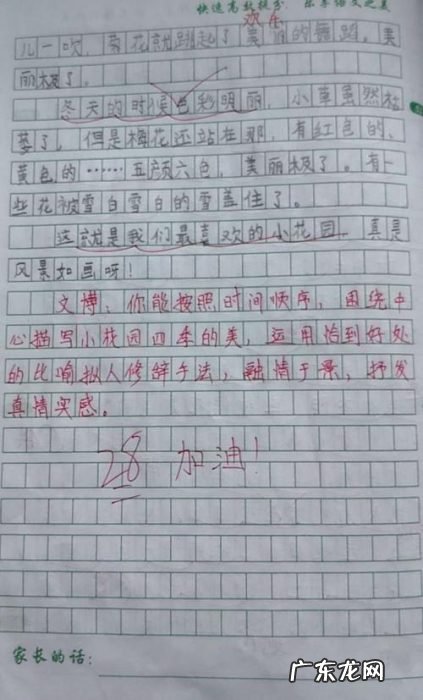 快速高效提分 乐享语文之美
欢乐
儿一吹，菊花就跳起了美丽的舞蹈，美
丽极了。
冬天的时候色彩明丽，小草虽然枯
萎了，但是梅花还站在那，有红色的、
黄色的……五颜六色，美丽极了。有一
些花被雪白雪白的雪盖住了。
这就是我们最喜欢的小花园，真是
风景如画呀！
文博，你能按照时间顺序，围绕中
心描写小花园四季的美，运用恰到好处
的比喻拟人修辞手法，融情于景，抒发
真情实感。
28 加油！
家长的话：
广东龙网